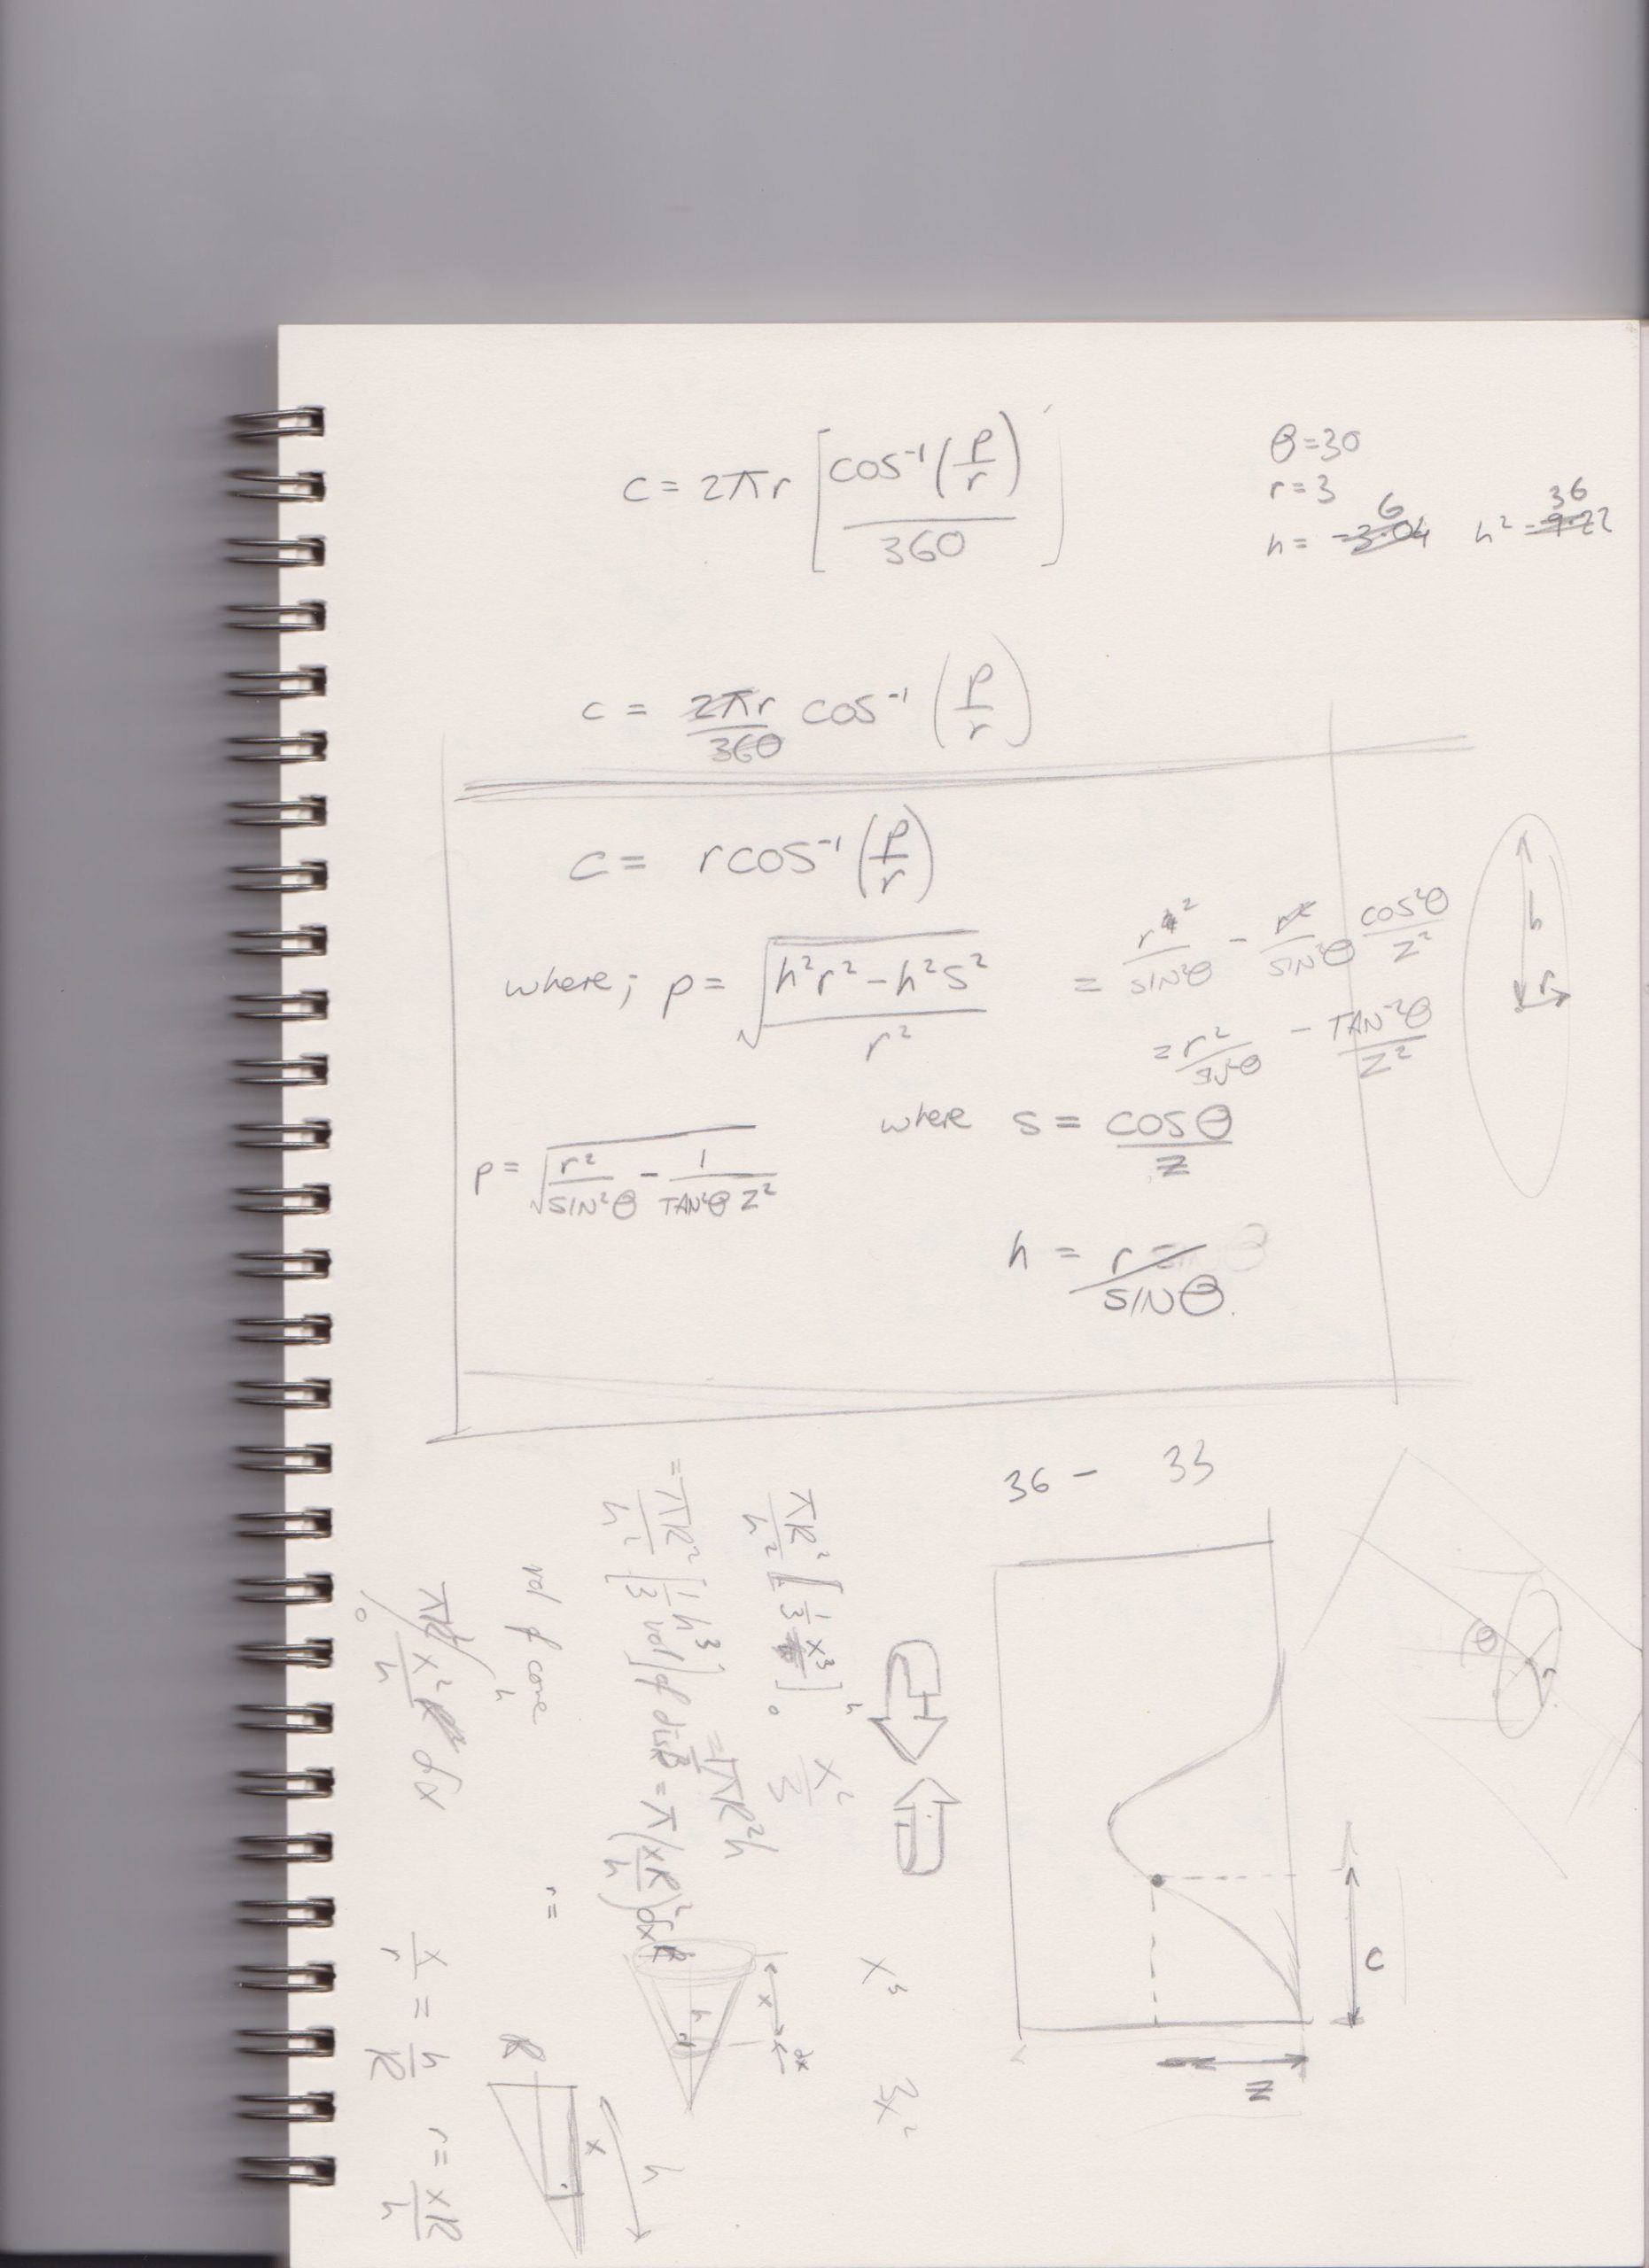 c = 2πr [cos⁻¹(p/r) / 360]
θ=30
r=3
h = -3.04 6 h² = 9.22 36
c = 2πr/360 cos⁻¹ (p/r)
c = r cos⁻¹ (p/r)
where; p = √(h²r² - h²s² / r²) = r²/SIN²θ - r²/SIN²θ COS²θ/Z²
= r²/SIN²θ - TAN⁻²θ/Z²
where s = COSθ/Z
p = √(r²/SIN²θ - 1/TAN²θ Z²)
h = r/SINθ.
h
r
36 - 33
θ
r
C
Z
πR²/h² [1/3 x³]₀ʰ
x²/3
= πR²/h² [1/3 h³] = 1/3 πR²h
vol of disk = π(xR/h)² dx
vol of cone
x² dx
r =
x/r = h/R r = xR/h
R
h
r
x
dx
R
x
h
x³
3x²